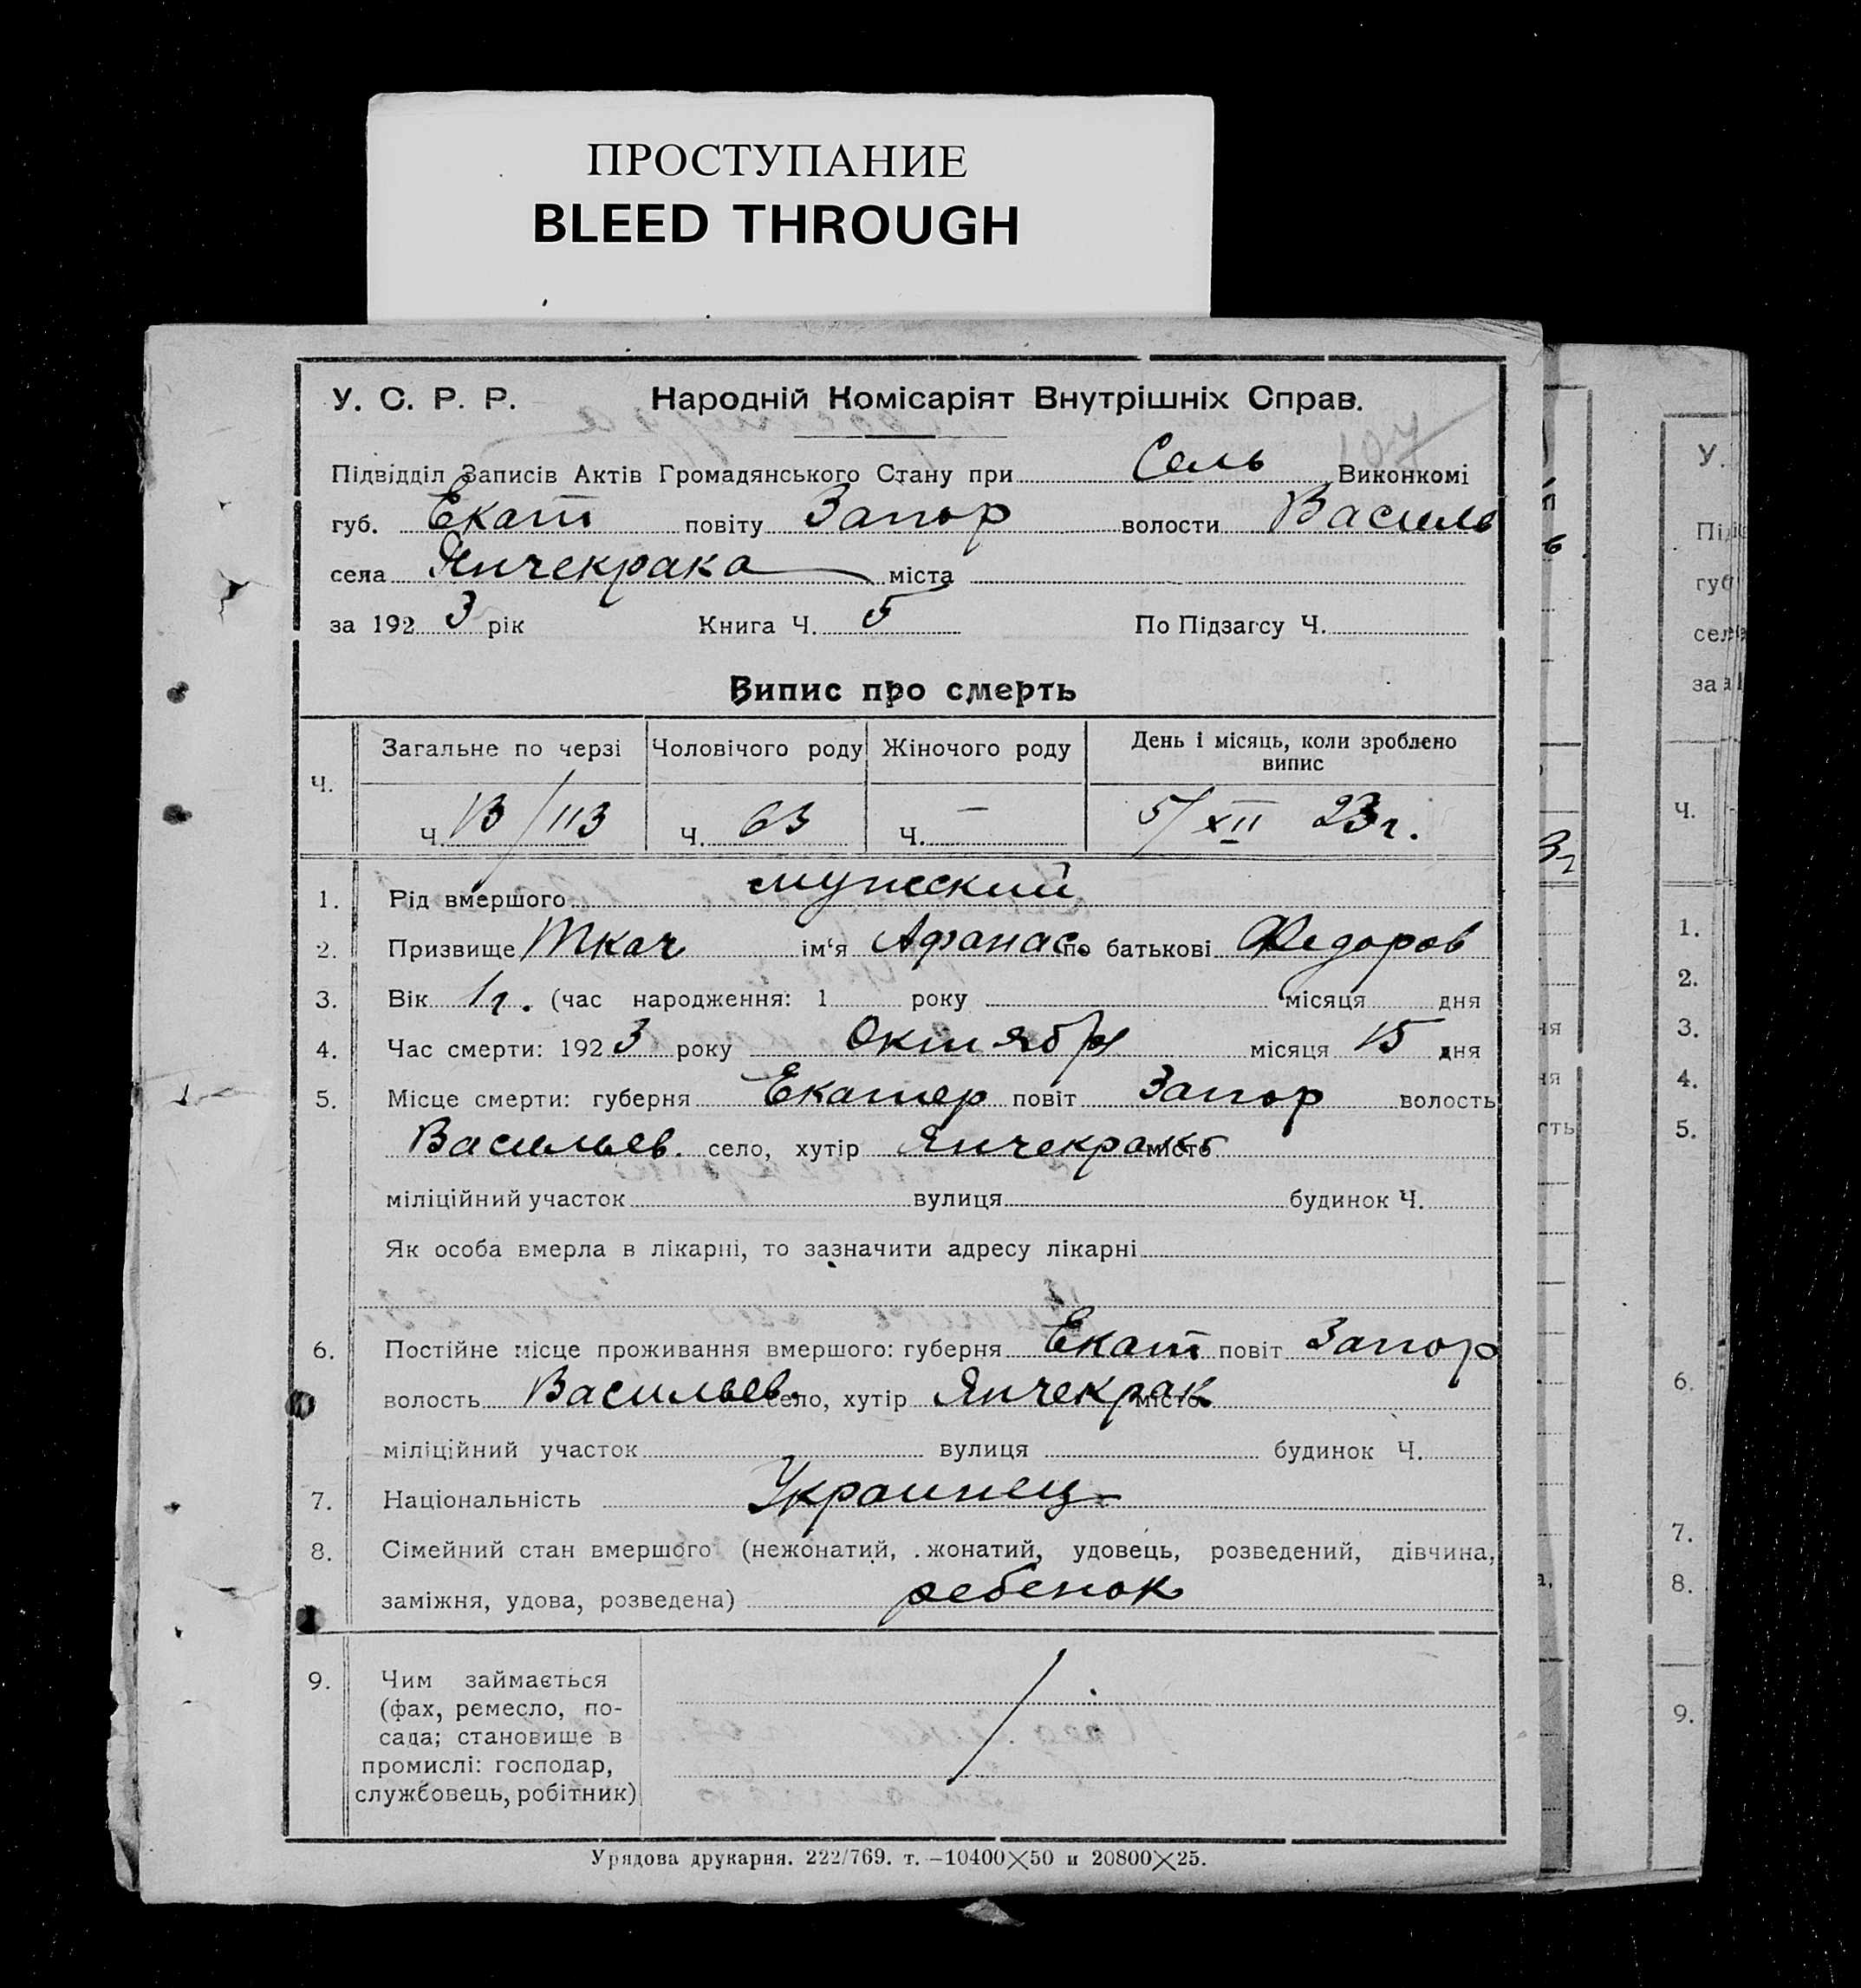 ПРОСТУПАНИЕ
BLEED THROUGH
У. С. Р. Р. Народній Комісаріят Внутрішніх Справ.
Підвідділ Записів Актів Громадянського Стану при Сель Виконкомі
губ. Екат повіту Запор волости Василь
села Янчекрака міста
за 1923 рік Книга Ч. 5 По Підзагсу Ч.
Випис про смерть
Загальне по черзі Чоловічого роду Жіночого роду День і місяць, коли зроблено випис
Ч.
Ч. 13/113 Ч. 63 Ч. — 5/XII 23г.
1. Рід вмершого мужский
2. Призвище Ткач ім‘я Афанас. по батькові Федоров
3. Вік 1г. (час народження: 1 року місяця дня
4. Час смерти: 1923 року Октября місяця 15 дня
5. Місце смерти: губерня Екатер повіт Запор волость
Васильев. село, хутір Янчекрак місто
міліційний участок вулиця будинок Ч.
Як особа вмерла в лікарні, то зазначити адресу лікарні
6. Постійне місце проживання вмершого: губерня Екат повіт Запор
волость Васильев. село, хутір Янчекрак місто
міліційний участок вулиця будинок Ч.
7. Національність Украинец
8. Сімейний стан вмершого (нежонатий, жонатий, удовець, розведений, дівчина,
заміжня, удова, розведена) ребенок
9. Чим займається
(фах, ремесло, по-
сада; становище в
промислі: господар,
службовець, робітник)
Урядова друкарня. 222/769. т. —10400×50 и 20800×25.
У.
губ
за 1
Ч.
1.
2.
3.
4.
5.
6.
7.
8.
9.